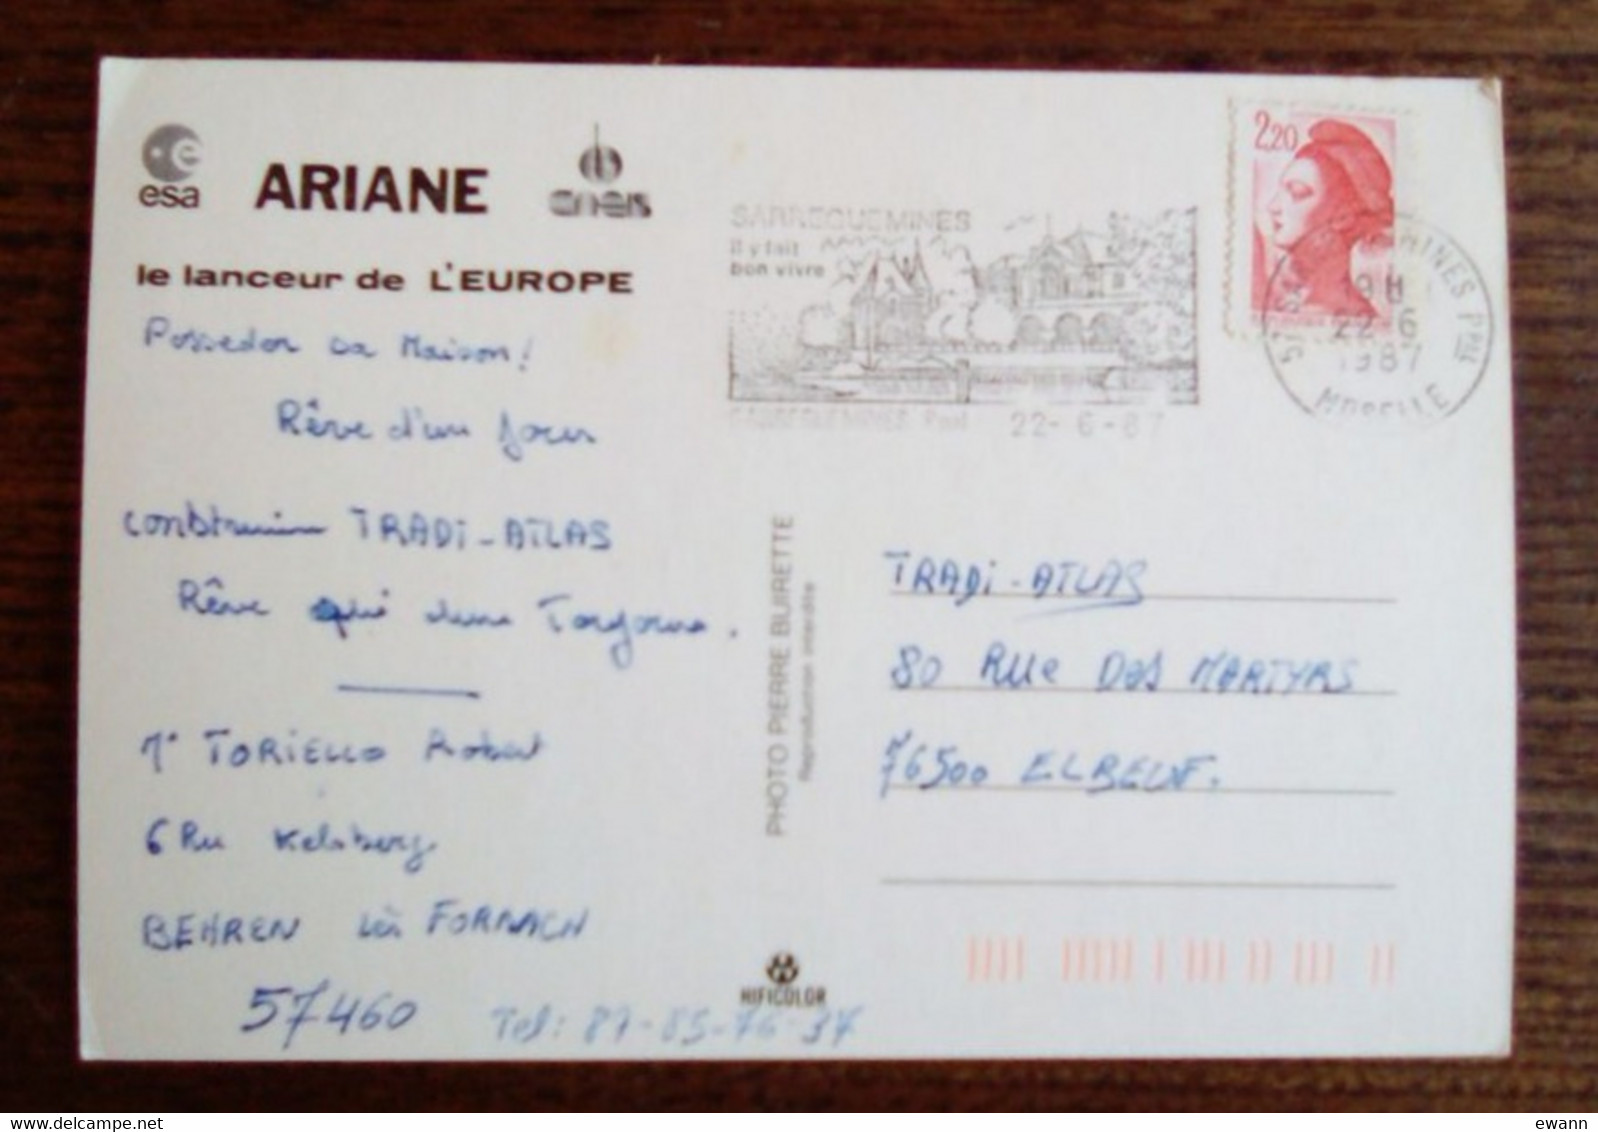 esa
ARIANE
cnes
le lanceur de L'EUROPE
Posseder sa Maison!
Rêve d'un jour
construire TRADi-ATLAS
Rêve qui dure Toujours.
Mr TORiELLO Robert
6 Ru Kelsberg
BEHREN lès FORBACH
57460
Tel: 87-85-76-37
SARREGUEMINES
il y fait
bon vivre
SARREGUEMINES Ppal 22-6-87
2,20
57 SARREGUEMINES Ppal
19 H
22-6
1987
MOSELLE
PHOTO PIERRE BUIRETTE
Reproduction interdite
TRADi-ATLAS
80 RUe DES MARTYRS
76500 ELBEUF.
HIFICOLOR
ewann
Delcampe.net